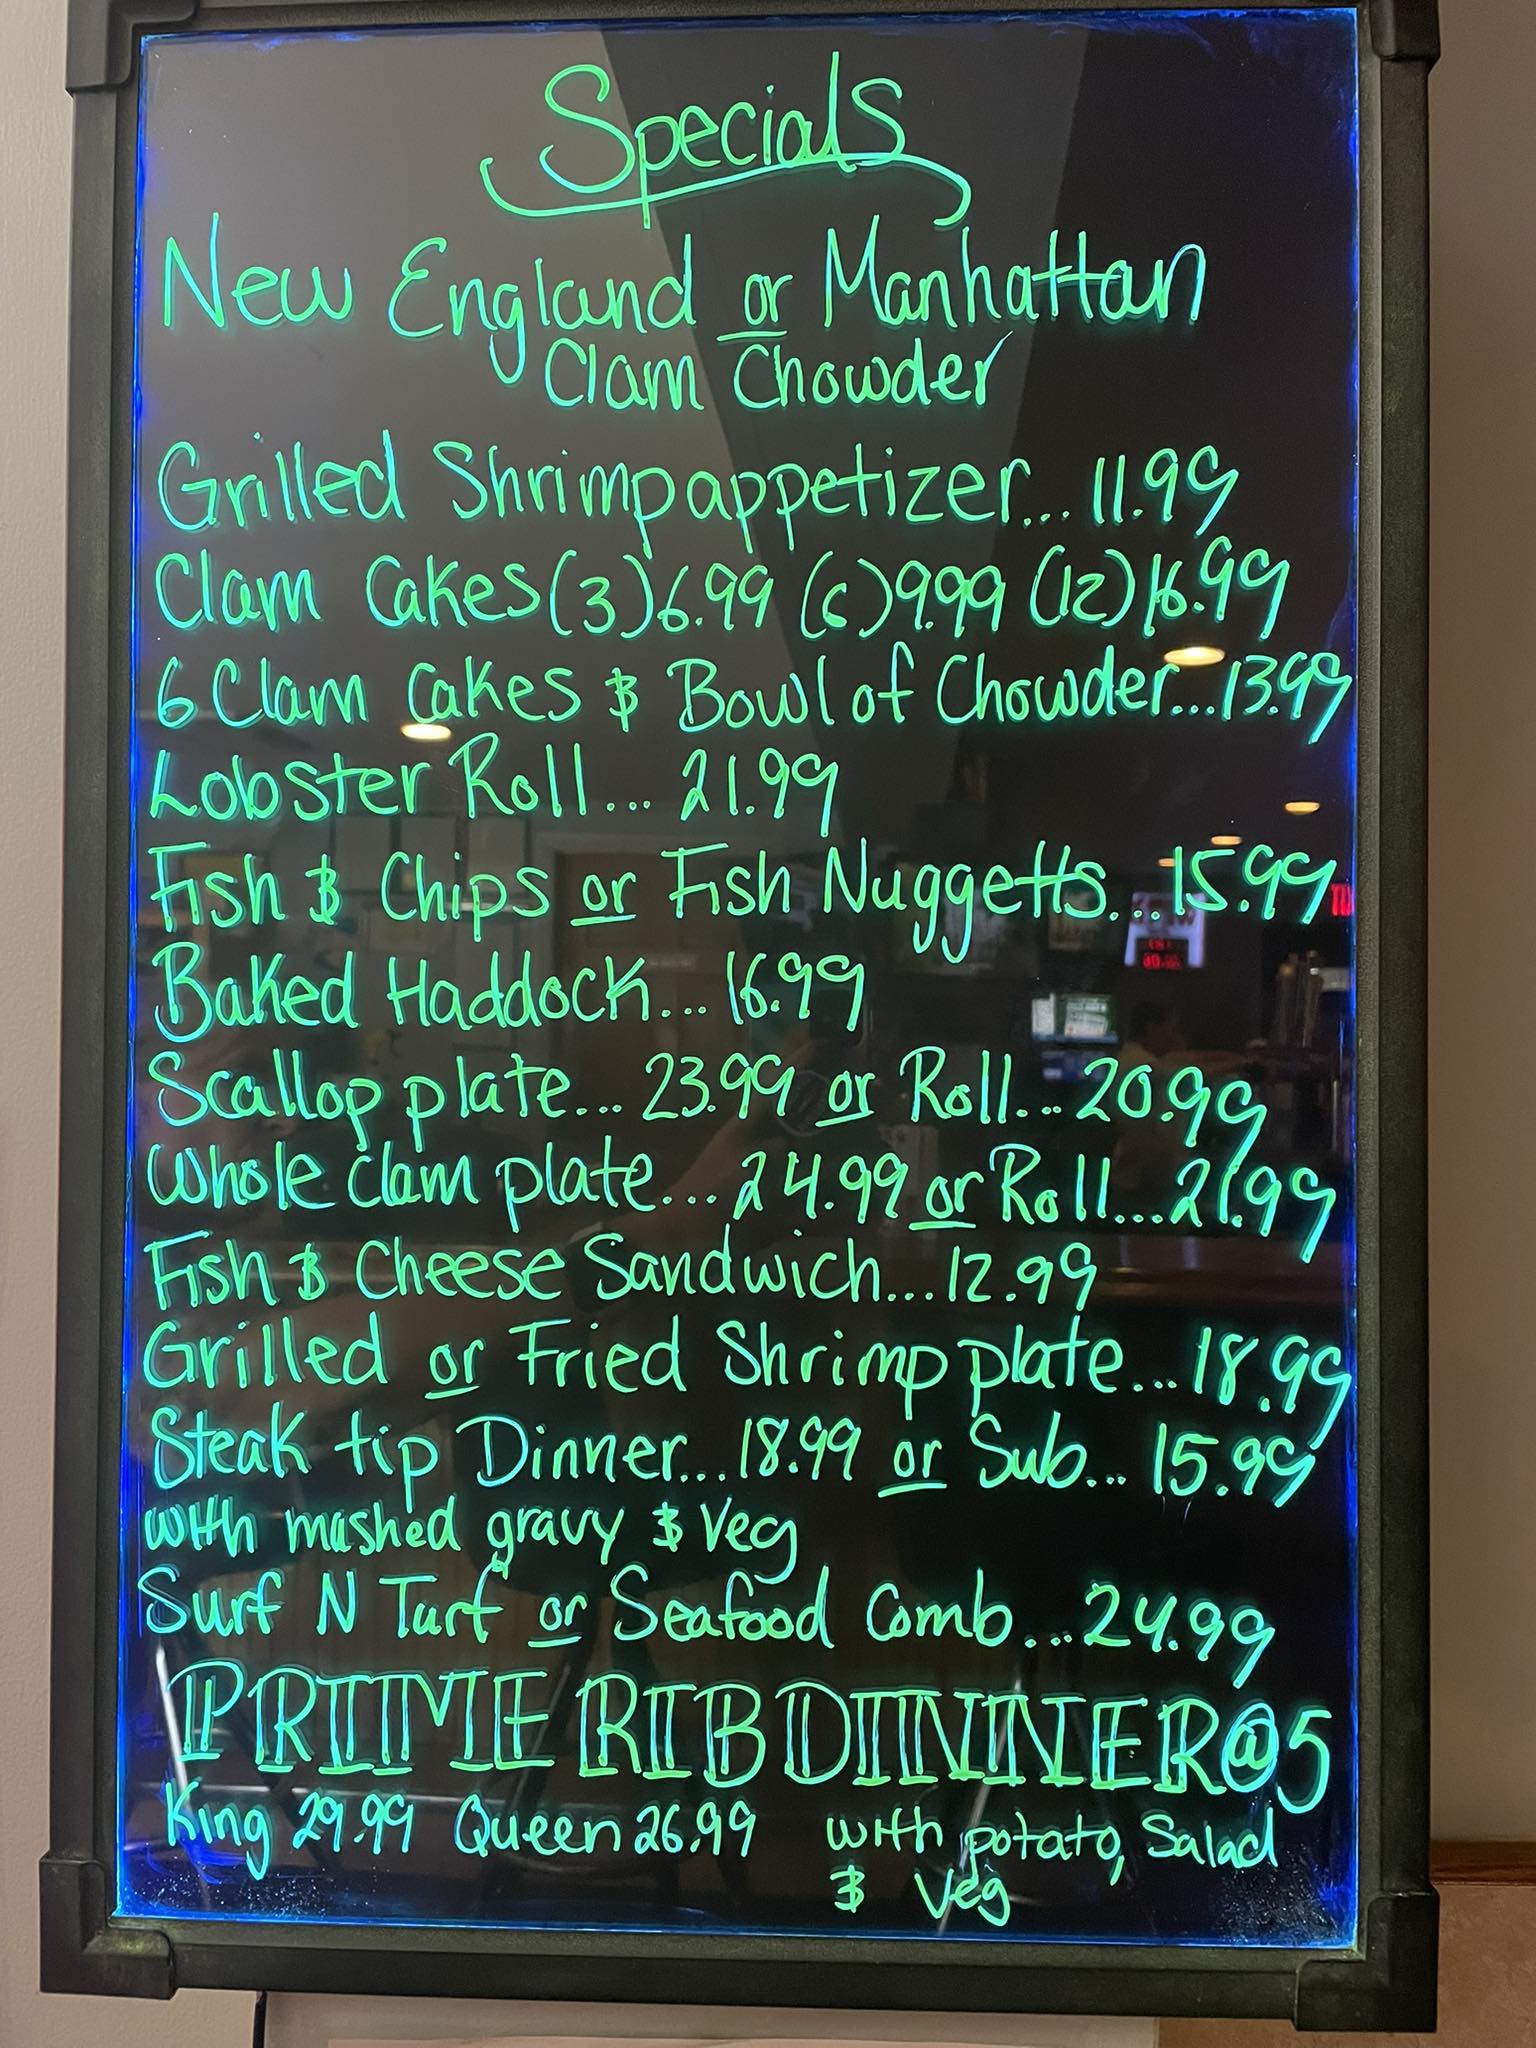 Specials
New England or Manhattan
Clam Chowder
Grilled Shrimp appetizer... 11.99
Clam Cakes (3) 6.99 (6) 9.99 (12) 16.99
6 Clam Cakes & Bowl of Chowder... 13.99
Lobster Roll... 21.99
Fish & Chips or Fish Nuggetts... 15.99
Baked Haddock... 16.99
Scallop plate... 23.99 or Roll... 20.99
Whole clam plate... 24.99 or Roll... 21.99
Fish & Cheese Sandwich... 12.99
Grilled or Fried Shrimp plate... 18.99
Steak tip Dinner... 18.99 or Sub... 15.99
with mashed gravy & Veg
Surf N Turf or Seafood Comb... 24.99
PRIME RIB DINNER @ 5
King 29.99 Queen 26.99 with potato, Salad
& Veg